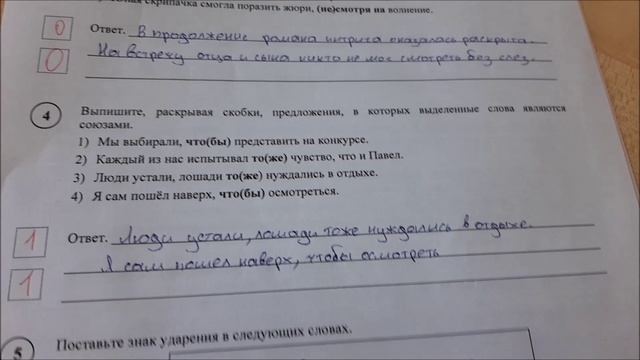 скрипачка смогла поразить жюри, (не)смотря на волнение.
0
Ответ. В продолжение романа интрига оказалась раскрыта.
0
На встречу отца и сына никто не мог смотреть без слез.
4
Выпишите, раскрывая скобки, предложения, в которых выделенные слова являются
союзами.
1) Мы выбирали, что(бы) представить на конкурсе.
2) Каждый из нас испытывал то(же) чувство, что и Павел.
3) Люди устали, лошади то(же) нуждались в отдыхе.
4) Я сам пошёл наверх, что(бы) осмотреться.
1
Ответ. Люди устали, лошади тоже нуждались в отдыхе.
1
Я сам пошел наверх, чтобы осмотреть
5
Поставьте знак ударения в следующих словах.